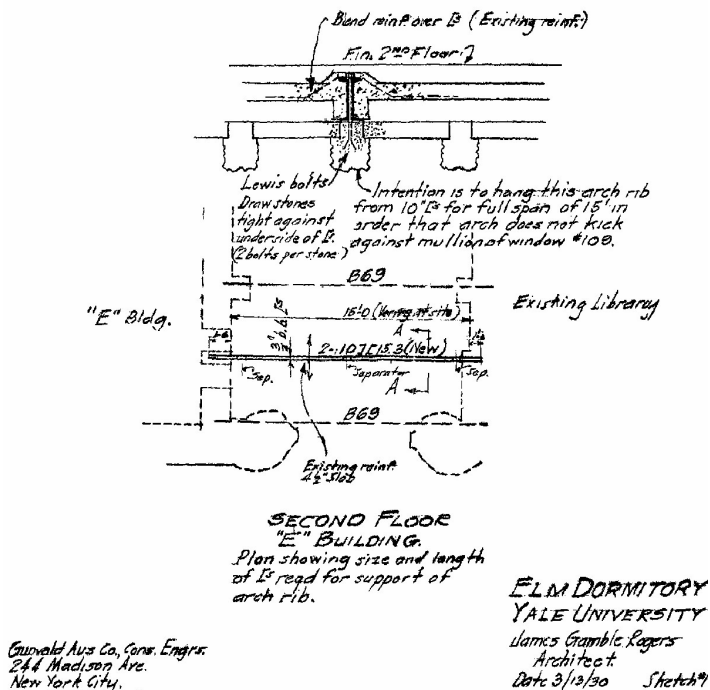 Bend reinf. over [s (Existing reinf.)
Fin. 2ND Floor
Lewis bolts
Draw stones
tight against
underside of [s.
(2 bolts per stone)
Intention is to hang this arch rib
from 10" [s for full span of 15' in
order that arch does not kick
against mullion of window #109.
B69
"E" Bldg.
Existing Library
15'-0 (Verify at site)
A
3½" b.b. [s
2-10" [ 15.3 (New)
Sep.
Separator
Sep.
A
B69
Existing reinf.
4½" Slab
SECOND FLOOR
"E" BUILDING.
Plan showing size and length
of [s reqd for support of
arch rib.
ELM DORMITORY
YALE UNIVERSITY
James Gamble Rogers
Architect.
Date 3/13/30 Sketch #1
Gunvald Aus Co., Cons. Engrs.
244 Madison Ave.
New York City.